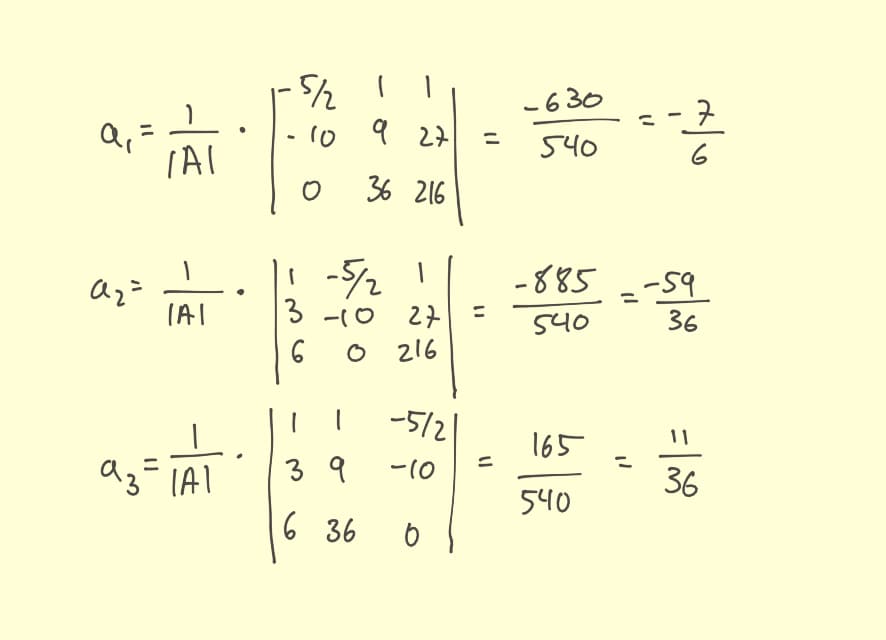 a₁ = 1/|A| · |-5/2 1 1; -10 9 27; 0 36 216| = -630/540 = -7/6
a₂ = 1/|A| · |1 -5/2 1; 3 -10 27; 6 0 216| = -885/540 = -59/36
a₃ = 1/|A| · |1 1 -5/2; 3 9 -10; 6 36 0| = 165/540 = 11/36